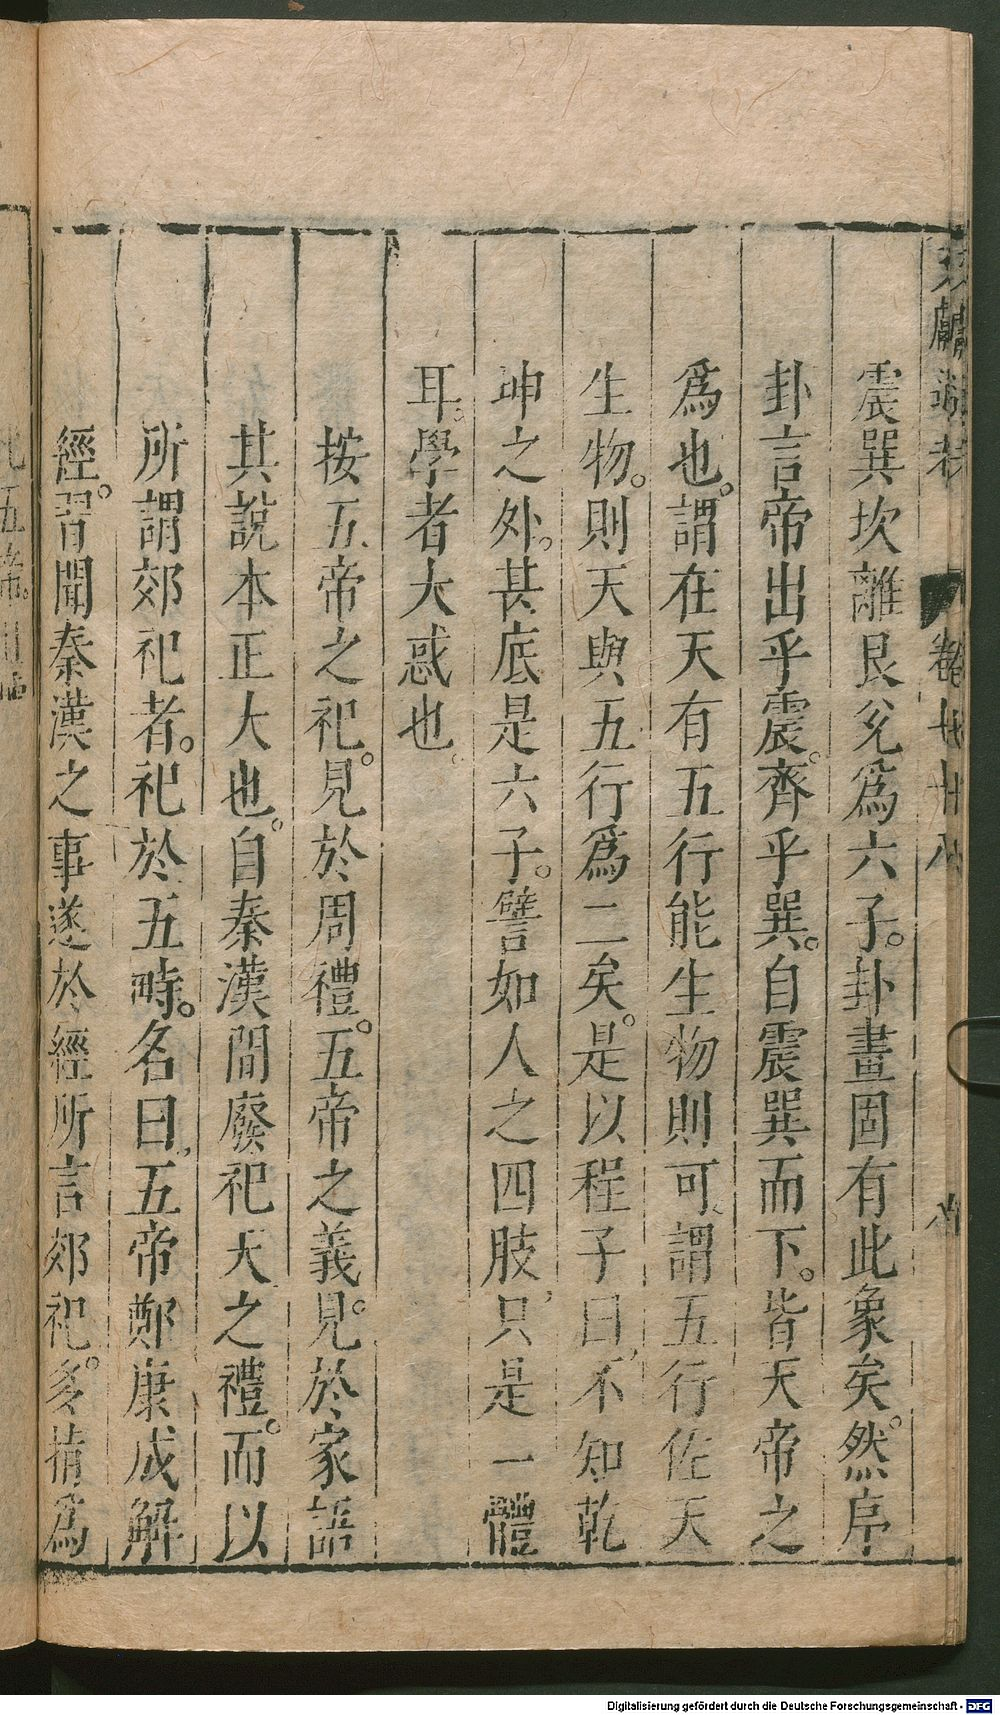 震巽坎離艮兌爲六子。卦畫固有此象矣。然序
卦言帝出乎震。齊乎巽。自震巽而下。皆天帝之
爲也。謂在天有五行能生物則可。謂五行佐天
生物。則天與五行爲二矣。是以程子曰、不知乾
坤之外。甚底是六子。譬如人之四肢、只是一體
耳。學者大惑也。
按五帝之祀。見於周禮。五帝之義。見於家語
其說本正大也。自秦漢間廢祀天之禮。而以
所謂郊祀者。祀於五畤。名曰、五帝鄭康成解
經。習聞秦漢之事遂於經所言郊祀。多指爲
卷
Digitalisierung gefördert durch die Deutsche Forschungsgemeinschaft - DFG